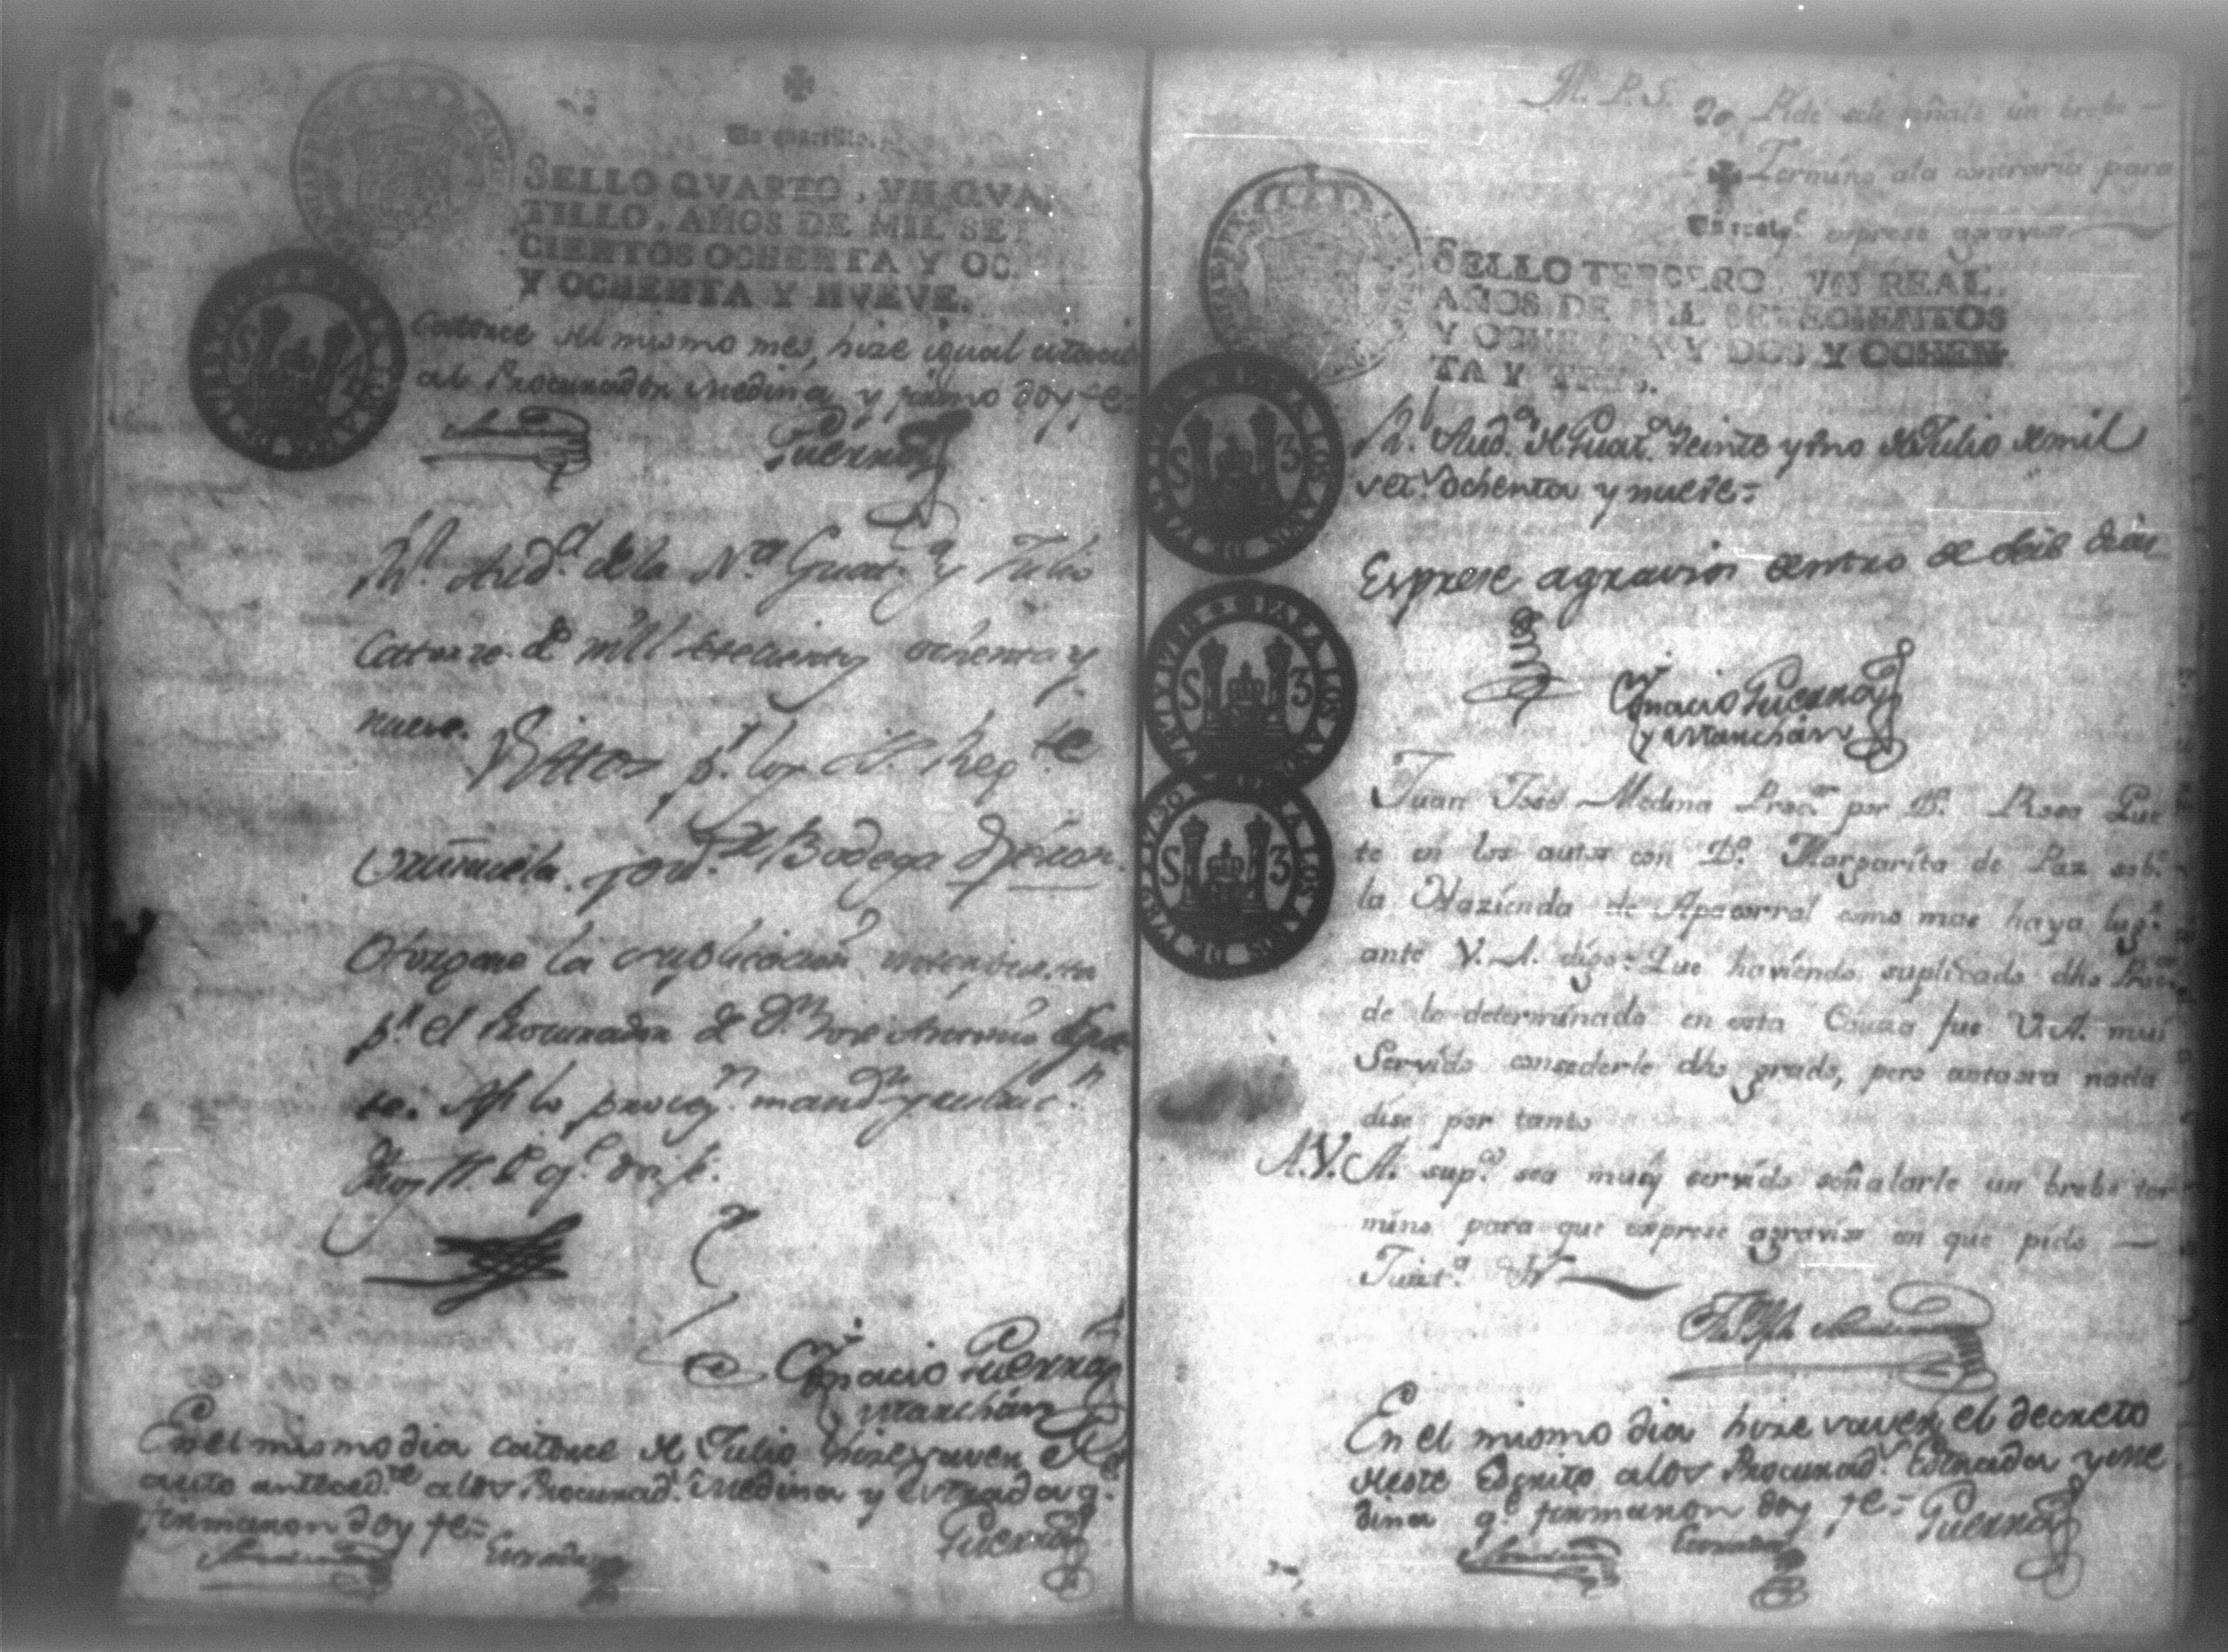 Un quartillo.
SELLO QVARTO, VN QVAR
TILLO, AÑOS DE MIL SETE
CIENTOS OCHENTA Y OCHO
Y OCHENTA Y NUEVE.
Catorce del mismo mes, hize igual citacion
al Procurador Medina, y firmo doy fe=
Guerra
Rl. Audª. de la Nª. Guatª. y Julio
Catorze de mill setecientos ochenta y
nueve.
Vistos pr. los SS. Regte.
Uruñuela. Bodega
Otorgase la suplicacion interpuesta
pr. el Procurador de Dn. Jose Antonio
Asi lo proveyn. mandn. y rubricn.
Ignacio Guerra
y Marchán
En el mismo dia catorce de Julio hize saver el
auto antecedte. a los Procurads. Medina y Estrada q.
firmaron doy fe=
Medina Estrada Guerra
M. P. S.
Pide se le señale un brebe
Termino a la contraria para
qe. exprese agravios
Un real.
SELLO TERCERO, VN REAL,
AÑOS DE MIL SETECIENTOS
Y OCHENTA Y DOS Y OCHEN-
TA Y TRES.
Rl. Audª. de Guatª. veinte y uno de Julio de mil
setˢ. ochenta y nueve=
Exprese agravios dentro de seis dias
Ignacio Guerra
y Marchán
Juan José Medina Procor. por Dª. Rosa
en los autos con Dª. Margarita de Paz sobe.
la Hazienda de Apacorral como mas haya lugr.
ante V. A. digo: Que haviendo suplicado dho
de lo determinado en esta Causa fue V. A. mui
Servido concederle dho grado, pero asta ora nada
dise por tanto
A. V. A. supco. sea muy servido señalarle un brebe ter
mino para que exprese agravios en que pido
Justª.
Medina
En el mismo dia hize saver el decreto
de este Escrito a los Procurads. Estrada y Me
dina qe. firmaron doy fe=
Medina Estrada Guerra
S 4
PARA LOS AÑOS DE
S 3
PARA LOS AÑOS DE 1789 Y 90
S 3
PARA LOS AÑOS DE
S 3